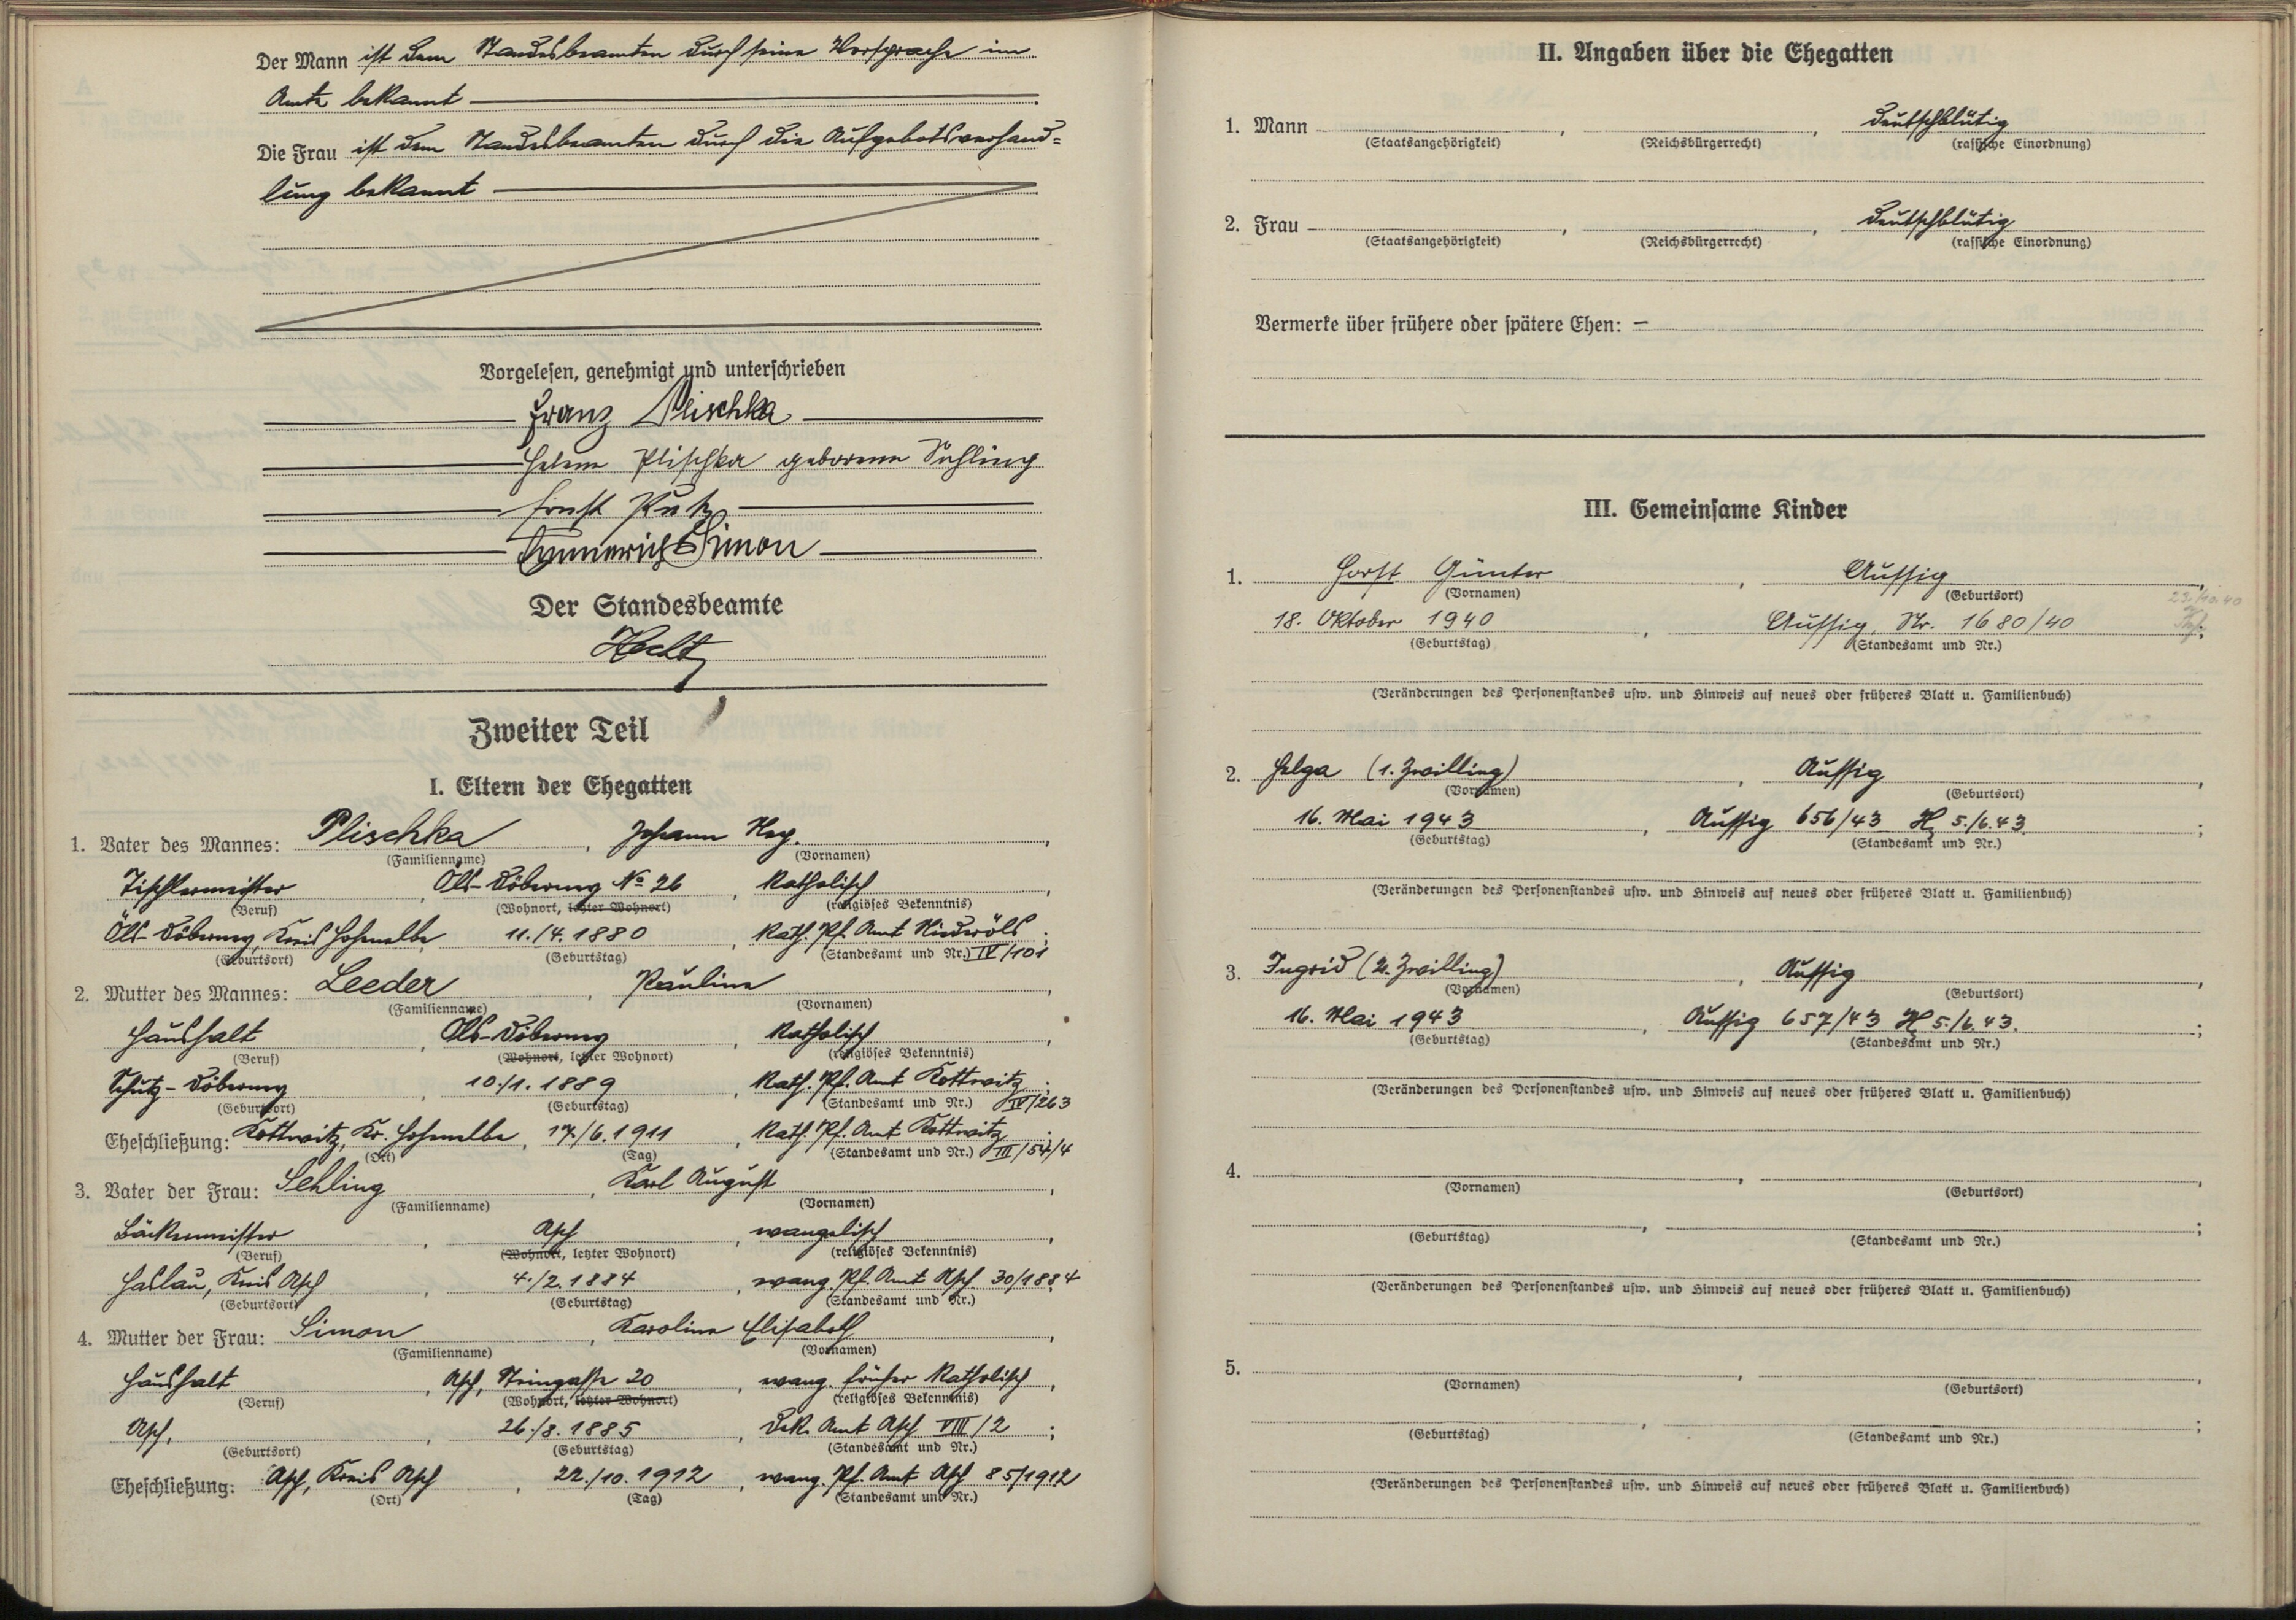 Der Mann ist dem Standesbeamten durch seine Vorsprache im
Amte bekannt
Die Frau ist dem Standesbeamten durch die Aufgebotsverhand=
lung bekannt
Vorgelesen, genehmigt und unterschrieben
Franz Plischka
Helene Plischka geborene Sehling
Ernst
Emmerich Simon
Der Standesbeamte
Hecht
Zweiter Teil
I. Eltern der Ehegatten
1. Vater des Mannes: Plischka, Johann
(Familienname) (Vornamen)
Tischlermeister, Öls-Döberney No 26, katholisch,
(Beruf) (Wohnort, letzter Wohnort) (religiöses Bekenntnis)
Öls-Döberney, Kreis Hohenelbe 11./4. 1880, Kath. Pf. Amt Niederöls;
(Geburtsort) (Geburtstag) (Standesamt und Nr.) IV/101
2. Mutter des Mannes: Leeder, Paulina,
(Familienname) (Vornamen)
Haushalt, Öls-Döberney, katholisch,
(Beruf) (Wohnort, letzter Wohnort) (religiöses Bekenntnis)
Schutz-Döberney, 10./1. 1889, Kath. Pf. Amt Kottwitz;
(Geburtsort) (Geburtstag) (Standesamt und Nr.) IV/263
Eheschließung: Kottwitz, Kr. Hohenelbe, 17./6. 1911, Kath. Pf. Amt Kottwitz
(Ort) (Tag) (Standesamt und Nr.) III/54/4
3. Vater der Frau: Sehling, Karl August,
(Familienname) (Vornamen)
Bäckermeister, Asch, evangelisch,
(Beruf) (Wohnort, letzter Wohnort) (religiöses Bekenntnis)
Haslau, Kreis Asch, 4./2. 1884, evang. Pf. Amt Asch 30/1884
(Geburtsort) (Geburtstag) (Standesamt und Nr.)
4. Mutter der Frau: Simon, Karolina Elisabeth,
(Familienname) (Vornamen)
Haushalt, Asch, Steingasse 20, evang. früher katholisch,
(Beruf) (Wohnort, letzter Wohnort) (religiöses Bekenntnis)
Asch, 26./8. 1885, Dek. Amt Asch VIII/2;
(Geburtsort) (Geburtstag) (Standesamt und Nr.)
Eheschließung: Asch, Kreis Asch, 22./10. 1912, evang. Pf. Amt Asch 85/1912
(Ort) (Tag) (Standesamt und Nr.)
II. Angaben über die Ehegatten
1. Mann, , deutschblütig
(Staatsangehörigkeit) (Reichsbürgerrecht) (rassische Einordnung)
2. Frau, , deutschblütig
(Staatsangehörigkeit) (Reichsbürgerrecht) (rassische Einordnung)
Vermerke über frühere oder spätere Ehen: –
III. Gemeinsame Kinder
1. Horst Günter, Aussig,
(Vornamen) (Geburtsort)
18. Oktober 1940, Aussig, Nr. 1680/40;
(Geburtstag) (Standesamt und Nr.)
(Veränderungen des Personenstandes usw. und Hinweis auf neues oder früheres Blatt u. Familienbuch)
2. Helga (1. Zwilling), Aussig,
(Vornamen) (Geburtsort)
16. Mai 1943, Aussig 656/43 5./6.43;
(Geburtstag) (Standesamt und Nr.)
(Veränderungen des Personenstandes usw. und Hinweis auf neues oder früheres Blatt u. Familienbuch)
3. Ingrid (2. Zwilling), Aussig,
(Vornamen) (Geburtsort)
16. Mai 1943, Aussig 657/43 5./6.43.;
(Geburtstag) (Standesamt und Nr.)
(Veränderungen des Personenstandes usw. und Hinweis auf neues oder früheres Blatt u. Familienbuch)
4. , ,
(Vornamen) (Geburtsort)
, ;
(Geburtstag) (Standesamt und Nr.)
(Veränderungen des Personenstandes usw. und Hinweis auf neues oder früheres Blatt u. Familienbuch)
5. , ,
(Vornamen) (Geburtsort)
, ;
(Geburtstag) (Standesamt und Nr.)
(Veränderungen des Personenstandes usw. und Hinweis auf neues oder früheres Blatt u. Familienbuch)